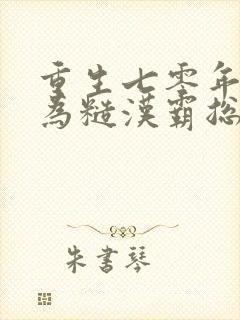 重生七零年
為糙漢霸總
朱書琴